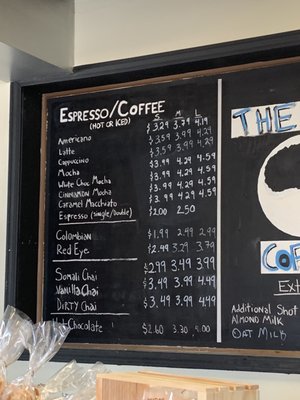 Espresso/Coffee
(hot or Iced) S M L
Americano $3.29 3.79 4.19
Latte $3.59 3.99 4.29
Cappuccino $3.59 3.99 4.29
Mocha $3.99 4.29 4.59
White Choc Mocha $3.99 4.29 4.59
Cinnamon Mocha $3.99 4.29 4.59
Caramel Macchiato $3.99 4.29 4.59
Espresso (single/Double) $2.00 2.50
Colombian $1.99 2.49 2.99
Red Eye $2.99 3.29 3.79
Somali Chai $2.99 3.49 3.99
Vanilla Chai $3.49 3.99 4.49
Dirty Chai $3.49 3.99 4.49
Hot Chocolate $2.60 3.30 5.00
THE
Additional Shot
Almond Milk
Oat Milk